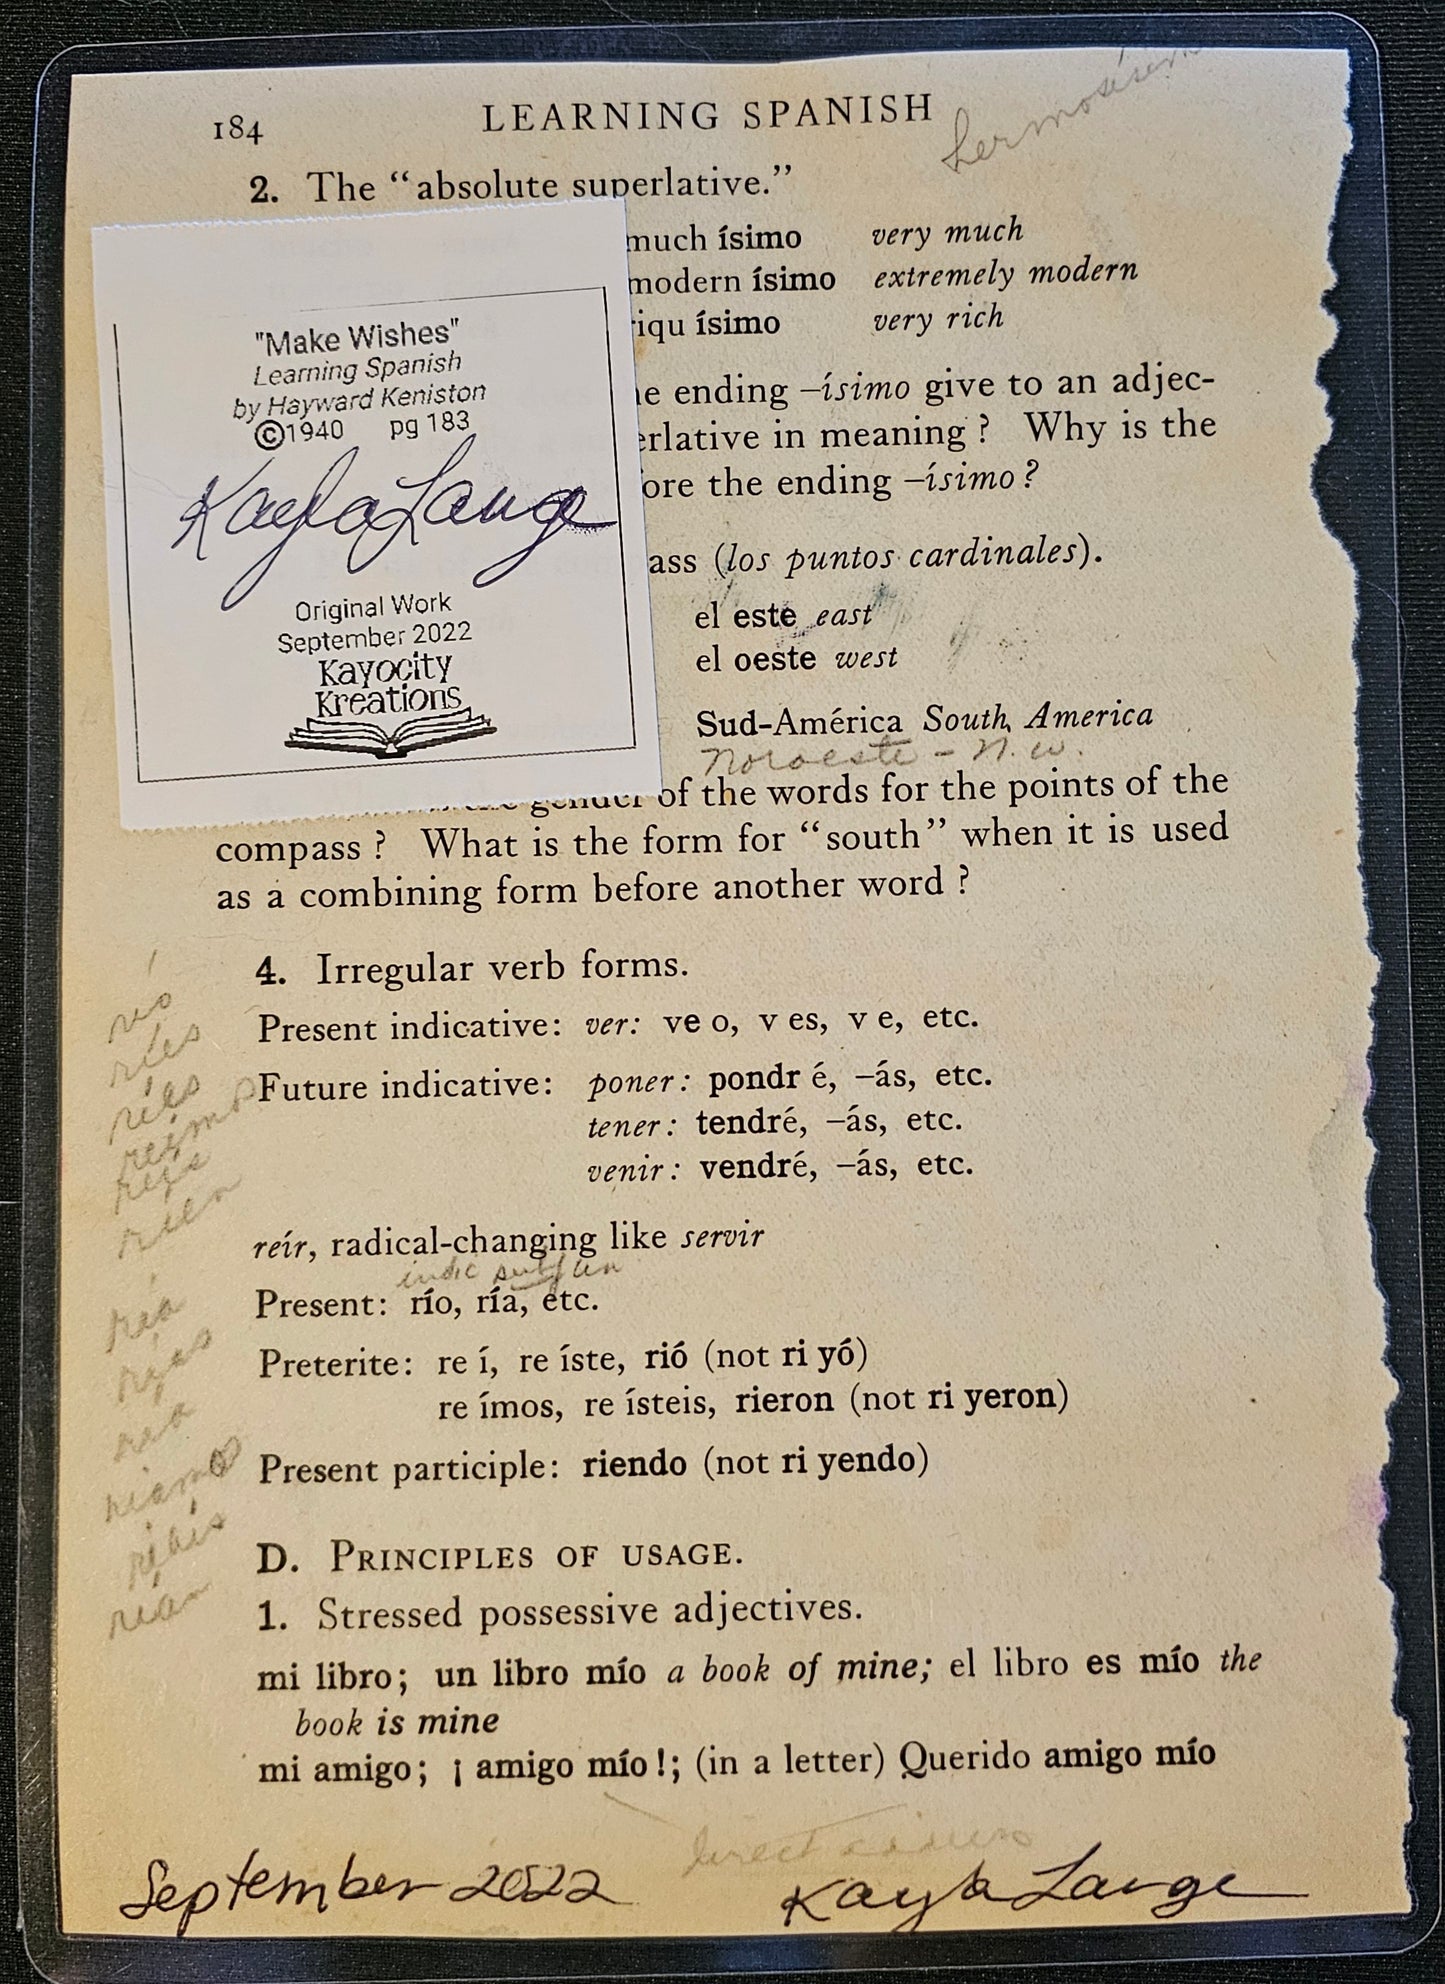 184 LEARNING SPANISH
2. The “absolute superlative.”
much ísimo very much
modern ísimo extremely modern
riqu ísimo very rich
ending –ísimo give to an adjec-
erlative in meaning? Why is the
ore the ending –ísimo?
ass (los puntos cardinales).
el este east
el oeste west
Sud-América South America
Noroeste - N.W.
gender of the words for the points of the
compass? What is the form for “south” when it is used
as a combining form before another word?
"Make Wishes"
Learning Spanish
by Hayward Keniston
©1940 pg 183
Kayla Lange
Original Work
September 2022
Kayocity
Kreations
4. Irregular verb forms.
Present indicative: ver: ve o, v es, v e, etc.
Future indicative: poner: pondr é, –ás, etc.
tener: tendré, –ás, etc.
venir: vendré, –ás, etc.
reír, radical-changing like servir
indic
Present: río, ría, etc.
Preterite: re í, re íste, rió (not ri yó)
re ímos, re ísteis, rieron (not ri yeron)
Present participle: riendo (not ri yendo)
D. PRINCIPLES OF USAGE.
1. Stressed possessive adjectives.
mi libro; un libro mío a book of mine; el libro es mío the
book is mine
mi amigo; ¡ amigo mío!; (in a letter) Querido amigo mío
río
ríes
September 2022 Kayla Lange